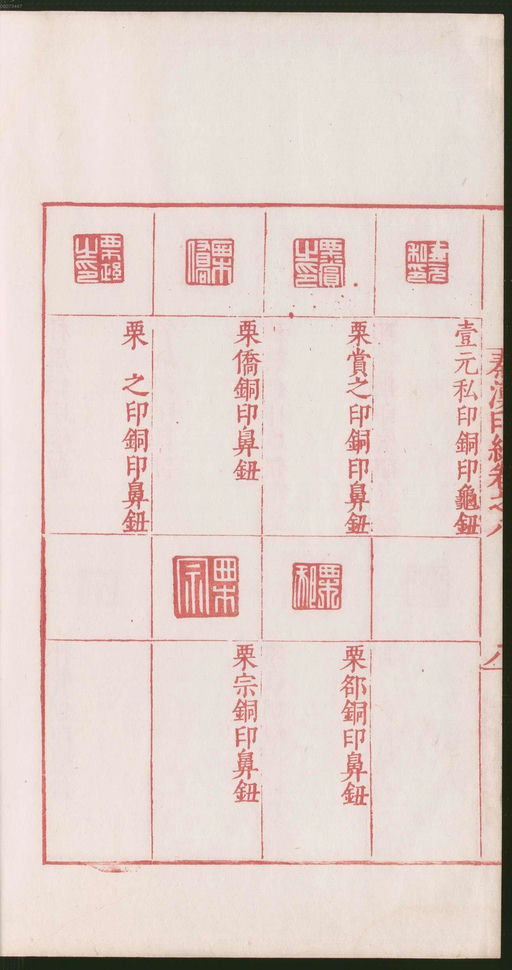 壹元私印銅印龜鈕
栗賞之印銅印鼻鈕
栗僑銅印鼻鈕
栗 之印銅印鼻鈕
栗郃銅印鼻鈕
栗宗銅印鼻鈕
秦漢印統卷之八
八